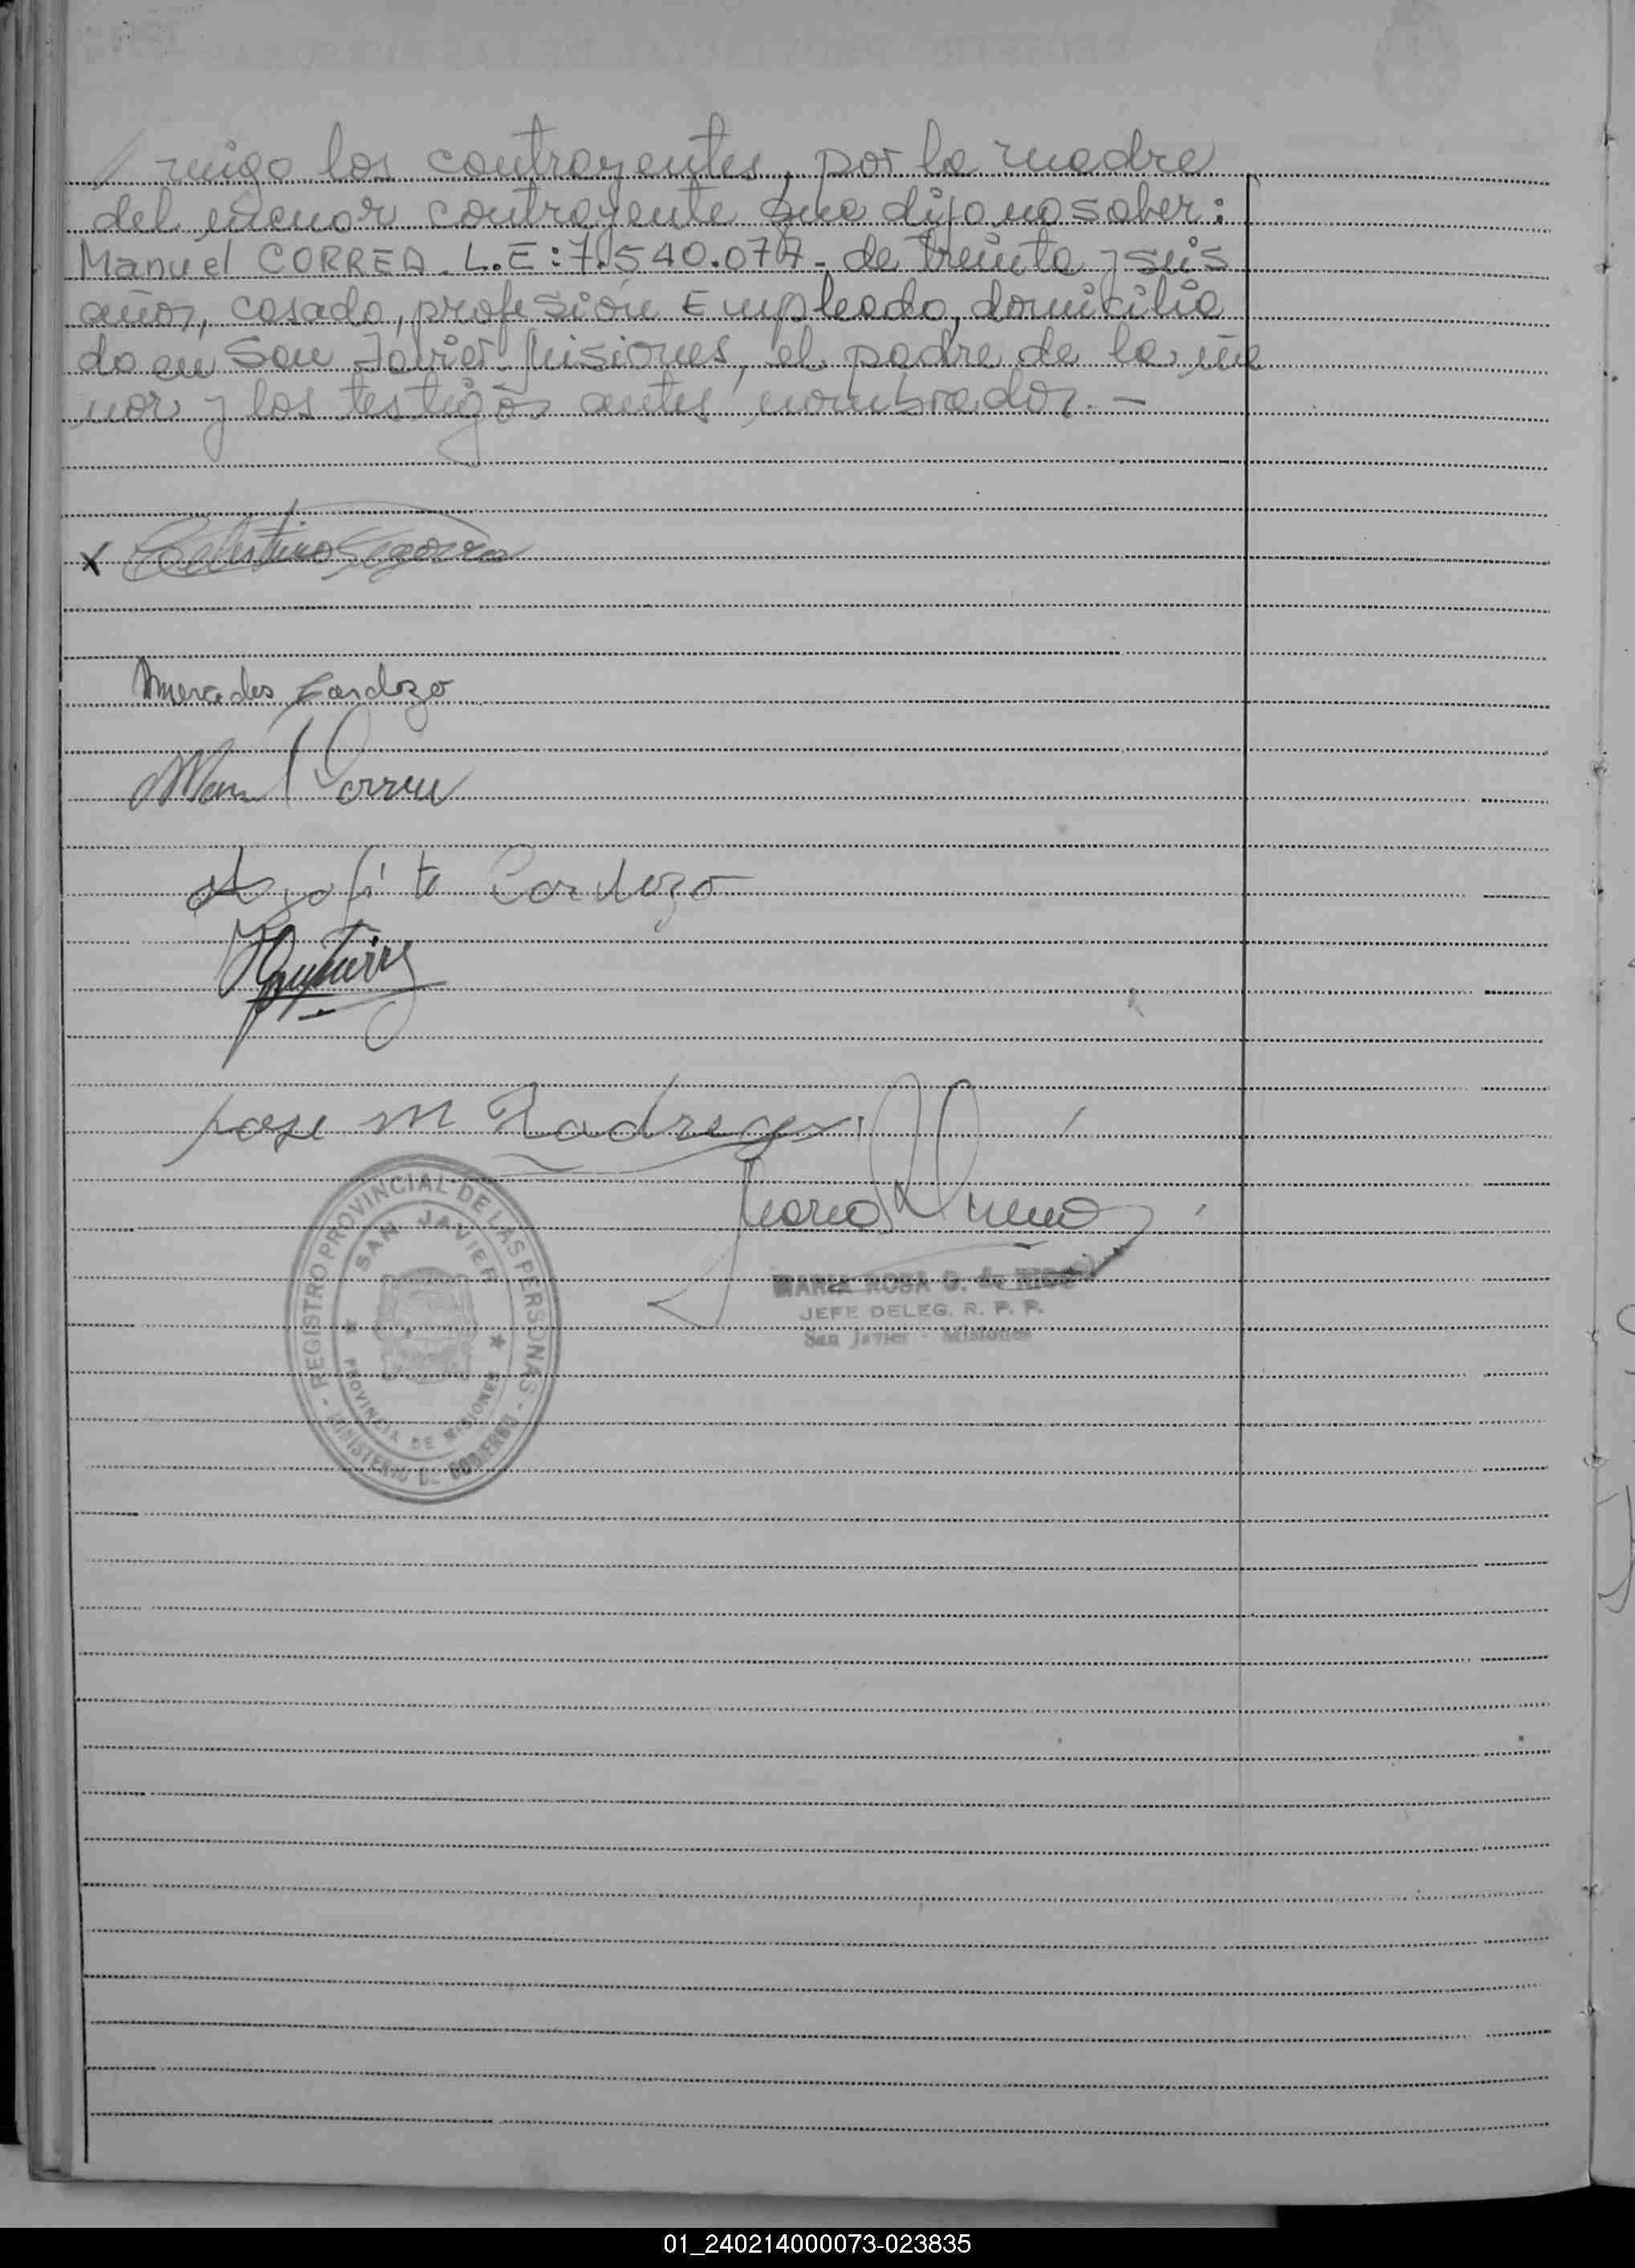 migo los contrayentes, por la madre
del menor contrayente que dijo no saber:
Manuel CORREA. L.E: 7.540.077- de treinta y seis
años, casado, profesión Empleado, domicilia
do en San Javier Misiones, el padre de la me
nor y los testigos antes nombrados. -
x Celestino
Mercedes Cardozo
Manuel Correa
Cardozo
Jose M Rodriguez
MARIA ROSA G. de
JEFE DELEG. R. P. P.
San Javier - Misiones
- REGISTRO PROVINCIAL DE LAS PERSONAS -
SAN JAVIER
PROVINCIA DE MISIONES
MINISTERIO DE GOBIERNO
01_240214000073-023835